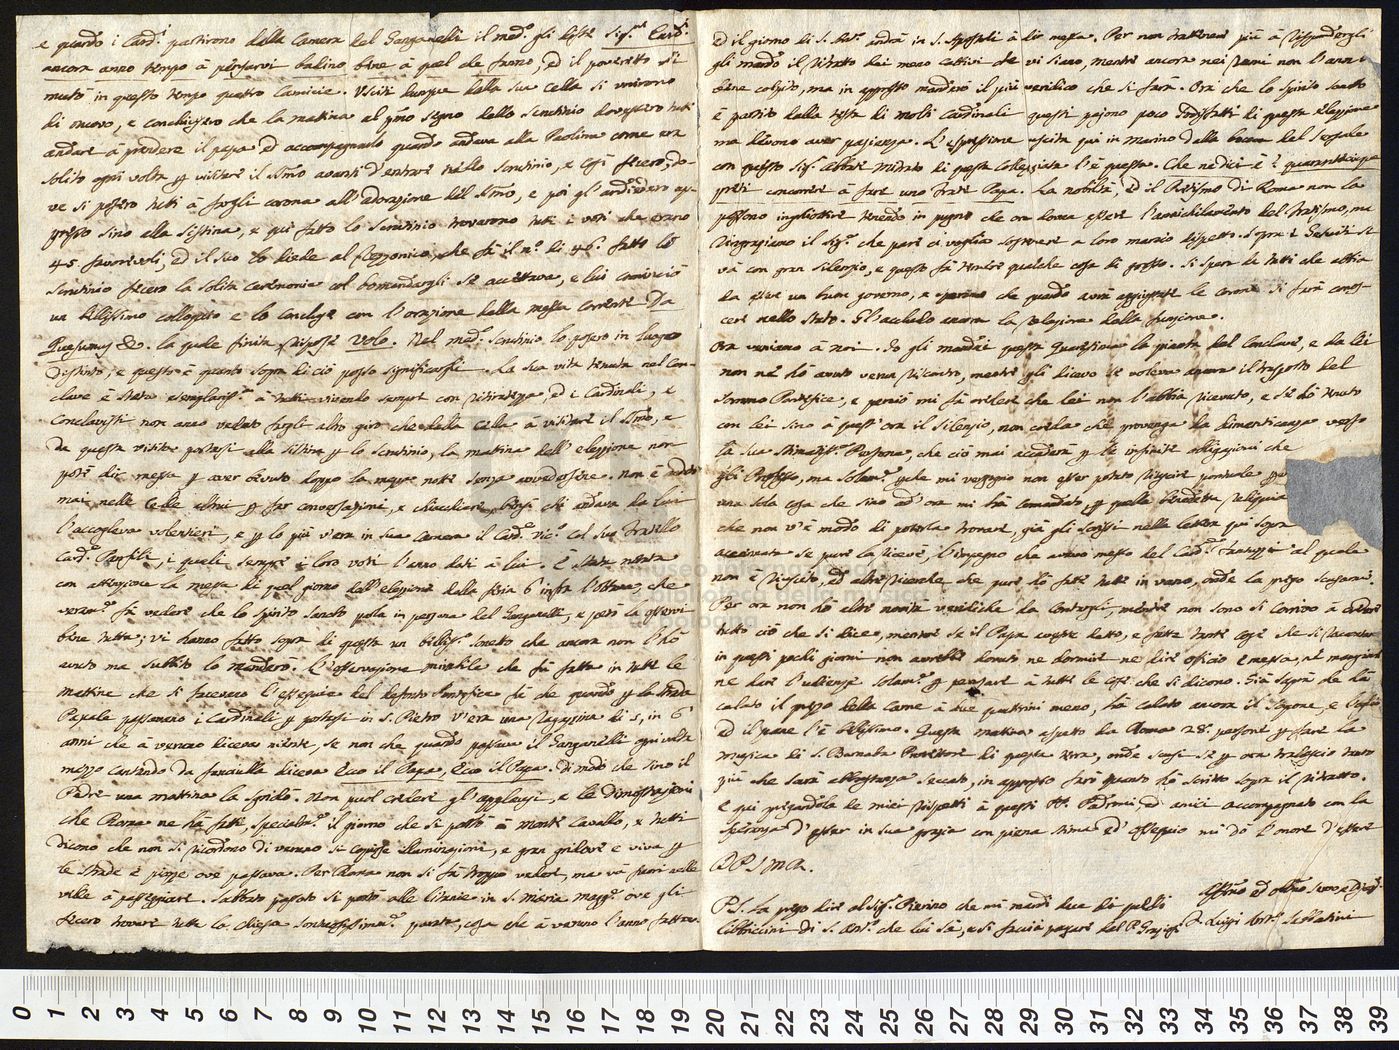 e quando i Card.i partirono dalla Camera del Ganganelli il med.o gli disse Sig.ri Card.i
ancora anno tempo à pensarvi balino bene à quel che fanno, ed il poveretto si
mutò in questo tempo quattro Camicie. Usciti dunque dalla sua Cella si unirono
di nuovo, e conclusero che la mattina al p.mo segno dello Scrutinio dovessero tutti
andare à prendere il papa ed accompagnarlo quando andava alla Paolina come era
solito ogni volta p visitare il SSmo avanti d'entrare nello Scrutinio, e così fecero; do-
ve si posero tutti à fargli corona all'adorazione del SSmo, e poi gl'andiedero ap-
presso sino alla Sistina, e qui fatto lo Scrutinio trovarono tutti i voti che erano
45 favorevoli, ed il suo lo diede al Rezzonico, che fà il n.o di 46. fatto lo
Scrutinio fecero la solita cerimonia col domandargli se accettava, e lui cominciò
un bellissimo colloquio e lo concluse con l'orazione della messa corrente Da
Quesumus &c. la quale finita rispose Volo. Nel med.o Scrutinio lo posero in luogo
distinto, e questo è quanto sopra di ciò posso significarli. La sua vita tenuta nel Con-
clave è stata à tutti vivendo sempre con ritiratezza, ed i Cardinali, e
Conclavisti non anno veduto fargli altro giro che dalla Cella à visitare il SSmo, e
da questa visita portarsi alla Sistina p lo Scrutinio, la mattina dell'elezzione non
potè dir messa p aver bevuto doppo la mezza notte senza avvedersene. non è andato
mai nelle Celle altrui p far conversazioni, e chiacchiere, bensì chi andava da lui
l'accoglieva volentieri, e p lo più v'era in sua Camera il Card. Vic.o col suo fratello
Card.e Panfili, i quali sempre i loro voti l'anno dati à lui. È stata notata
con attenzione la messa di quel giorno dell'elezione della feria 6 infra l'Ottava, che
veram.e fà vedere che lo Spirito Santo parla in persona del Ganganelli, e però la osservi
bene tutta; vi hanno fatto sopra di questa un belliss.o sonetto che ancora non l'hò
avuto ma subbito lo manderò. L'osservazione mirabile che fù fatta in tutte le
mattine che si facevano l'essequie del defonto Pontefice fù che quando p la strada
Papale passavano i Cardinali p portarsi in S. Pietro v'era una ragazzina di 5, in 6
anni che à veruno diceva niente, se non che quando passava il Ganganelli ogni volta
mezzo cantando da fanciulla diceva Ecco il Papa, Ecco il Papa. Di modo che sino il
Padre una mattina la sgridò. Non puol credere gl'applausi, e le dimostrazioni
che Roma ne hà fatte, specialm.e il giorno che si portò à Monte Cavallo, e tutti
dicono che non si ricordono di veruno si copiose illuminazioni, e gran gridare e viva p
le strade e piazze ove passava. Per Roma non si fà troppo vedere, ma và fuori nelle
ville à passeggiare. Sabbato passato si portò alle litanie in S. Maria Magg.e ove gli
fecero trovare tutta la chiesa parata, cosa che à veruno l'anno fatta.
ed il giorno di S. Ant.o andrà in S. Apostoli à dir messa. Per non trattenermi più à rispondergli
gli mando il ritratto dei meno cattivi che vi siano, mentre ancora nei rami non l'anno
bene colpito, ma in appresso manderò il più veridico che si farà. Ora che lo Spirito Santo
è partito dalla testa di molti Cardinali questi pajono poco sodisfatti di questa elezzione
ma devono aver pazienza. L'espressione uscita qui in Marino dalla bocca del
con questo Sig.e Abbate di questa Collegiata l'è questa. Che ne dici è
preti concorrere à fare uno Frate Papa. La nobiltà, ed il Pretismo di Roma non la
possono ingliottire tenendo in pugno che ora doveva essere l'annichilamento del fratismo, ma
ringraziamo il Sig.e che pare ci voglia sostenere a loro marcio dispetto. Sopra i Gesuiti si
và con gran silenzio, e questo fà temere qualche cosa di grosso. Si spera da tutti che abbia
da esser un buon governo, e che quando avrà aggiustate le corone si farà conos-
cere nello Stato. Gl'accludo ancora la relazione della funzione.
Ora veniamo à noi. Io gli mandai questa Quaresima la pianta del Conclave, e da lei
non ne hò avuto verun riscontro, mentre gli dicevo se voleva ancora il trasporto del
Sommo Pontefice, e perciò mi fà credere che lei non l'abbia ricevuta, e se hò tenuto
con lei sino à quest'ora il silenzio, non creda che provenga da dimenticanza verso
la sua stimatiss.a Persona, che ciò mai accaderà p le infinite obligazioni che
gli Professo, ma solam.e che mi vergogno non esser potuto riuscire
una sola cosa che sino ad'ora mi hà comandato, p quella benedetta reliquia
che non v'è modo di poterla trovare, già gli scrissi nella lettera qui sopra
accennata se pure la riceve, l'impegno che avevo messo del Card.e al quale
non è riuscito, ed altre ricerche che pure hò fatte tutte in vano, onde la prego scusarmi.
Per ora non hò altre novità veridiche da Contargli, mentre non sono di corrivo à credere
tutto ciò che si dice, mentre se il Papa avesse detto, e fatte tante cose che si raccontano
in questi pochi giorni non avrebbe dovuto ne dormire ne dire officio e messa, nè mangiare
ne dare l'udienze solam.e p pensare à tutte le cose che si dicono. Già saprà che hà
calato il prezzo della Carne à due quattrini meno, hà calato ancora il Sapone, e l'oglio
ed il pane l'è bellissimo. Questa mattina aspetto da Roma 28. persone p fare la
musica di S. Barnaba Protettore di questa terra, onde scusi se p ora tralascio tanto
più che sarà abbastanza seccato, in appresso farò quanto hò scritto sopra il ritratto.
e qui pregandola de miei rispetti à questi PP. Padroni ed amici accompagnato con la
speranza d'esser in sua grazia con piena stima ed'ossequio mi dò l'onore d'essere
D P S M R.
Affmo ed obbmo Servo e
P.S. La prego dire al Sig.r Pierino che mi mandi due di quelli
libbriccini di S. Ant.o che lui sà, e si faccia pagare dal P.
D. Luigi Ant.o Sabbatini
museo internazionale
e biblioteca della musica
di bologna
0 1 2 3 4 5 6 7 8 9 10 11 12 13 14 15 16 17 18 19 20 21 22 23 24 25 26 27 28 29 30 31 32 33 34 35 36 37 38 39